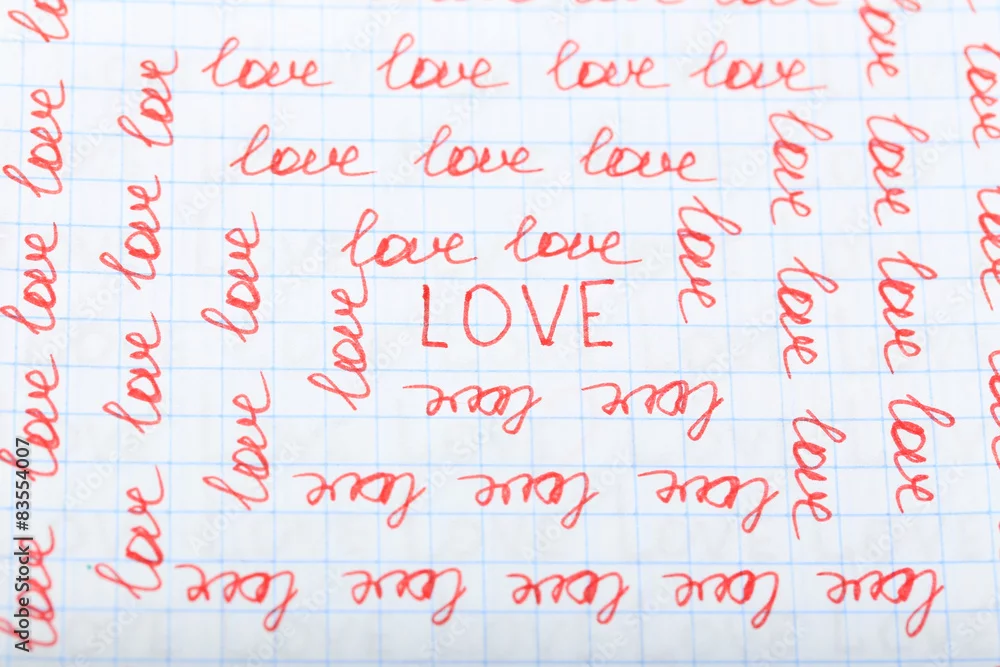 love love love love
love love love
love love
LOVE
love love
love love love
love love love love love
love love love love
love love love love
love love
love
love
love love love
love love love love
love love love
Adobe Stock | #83554007